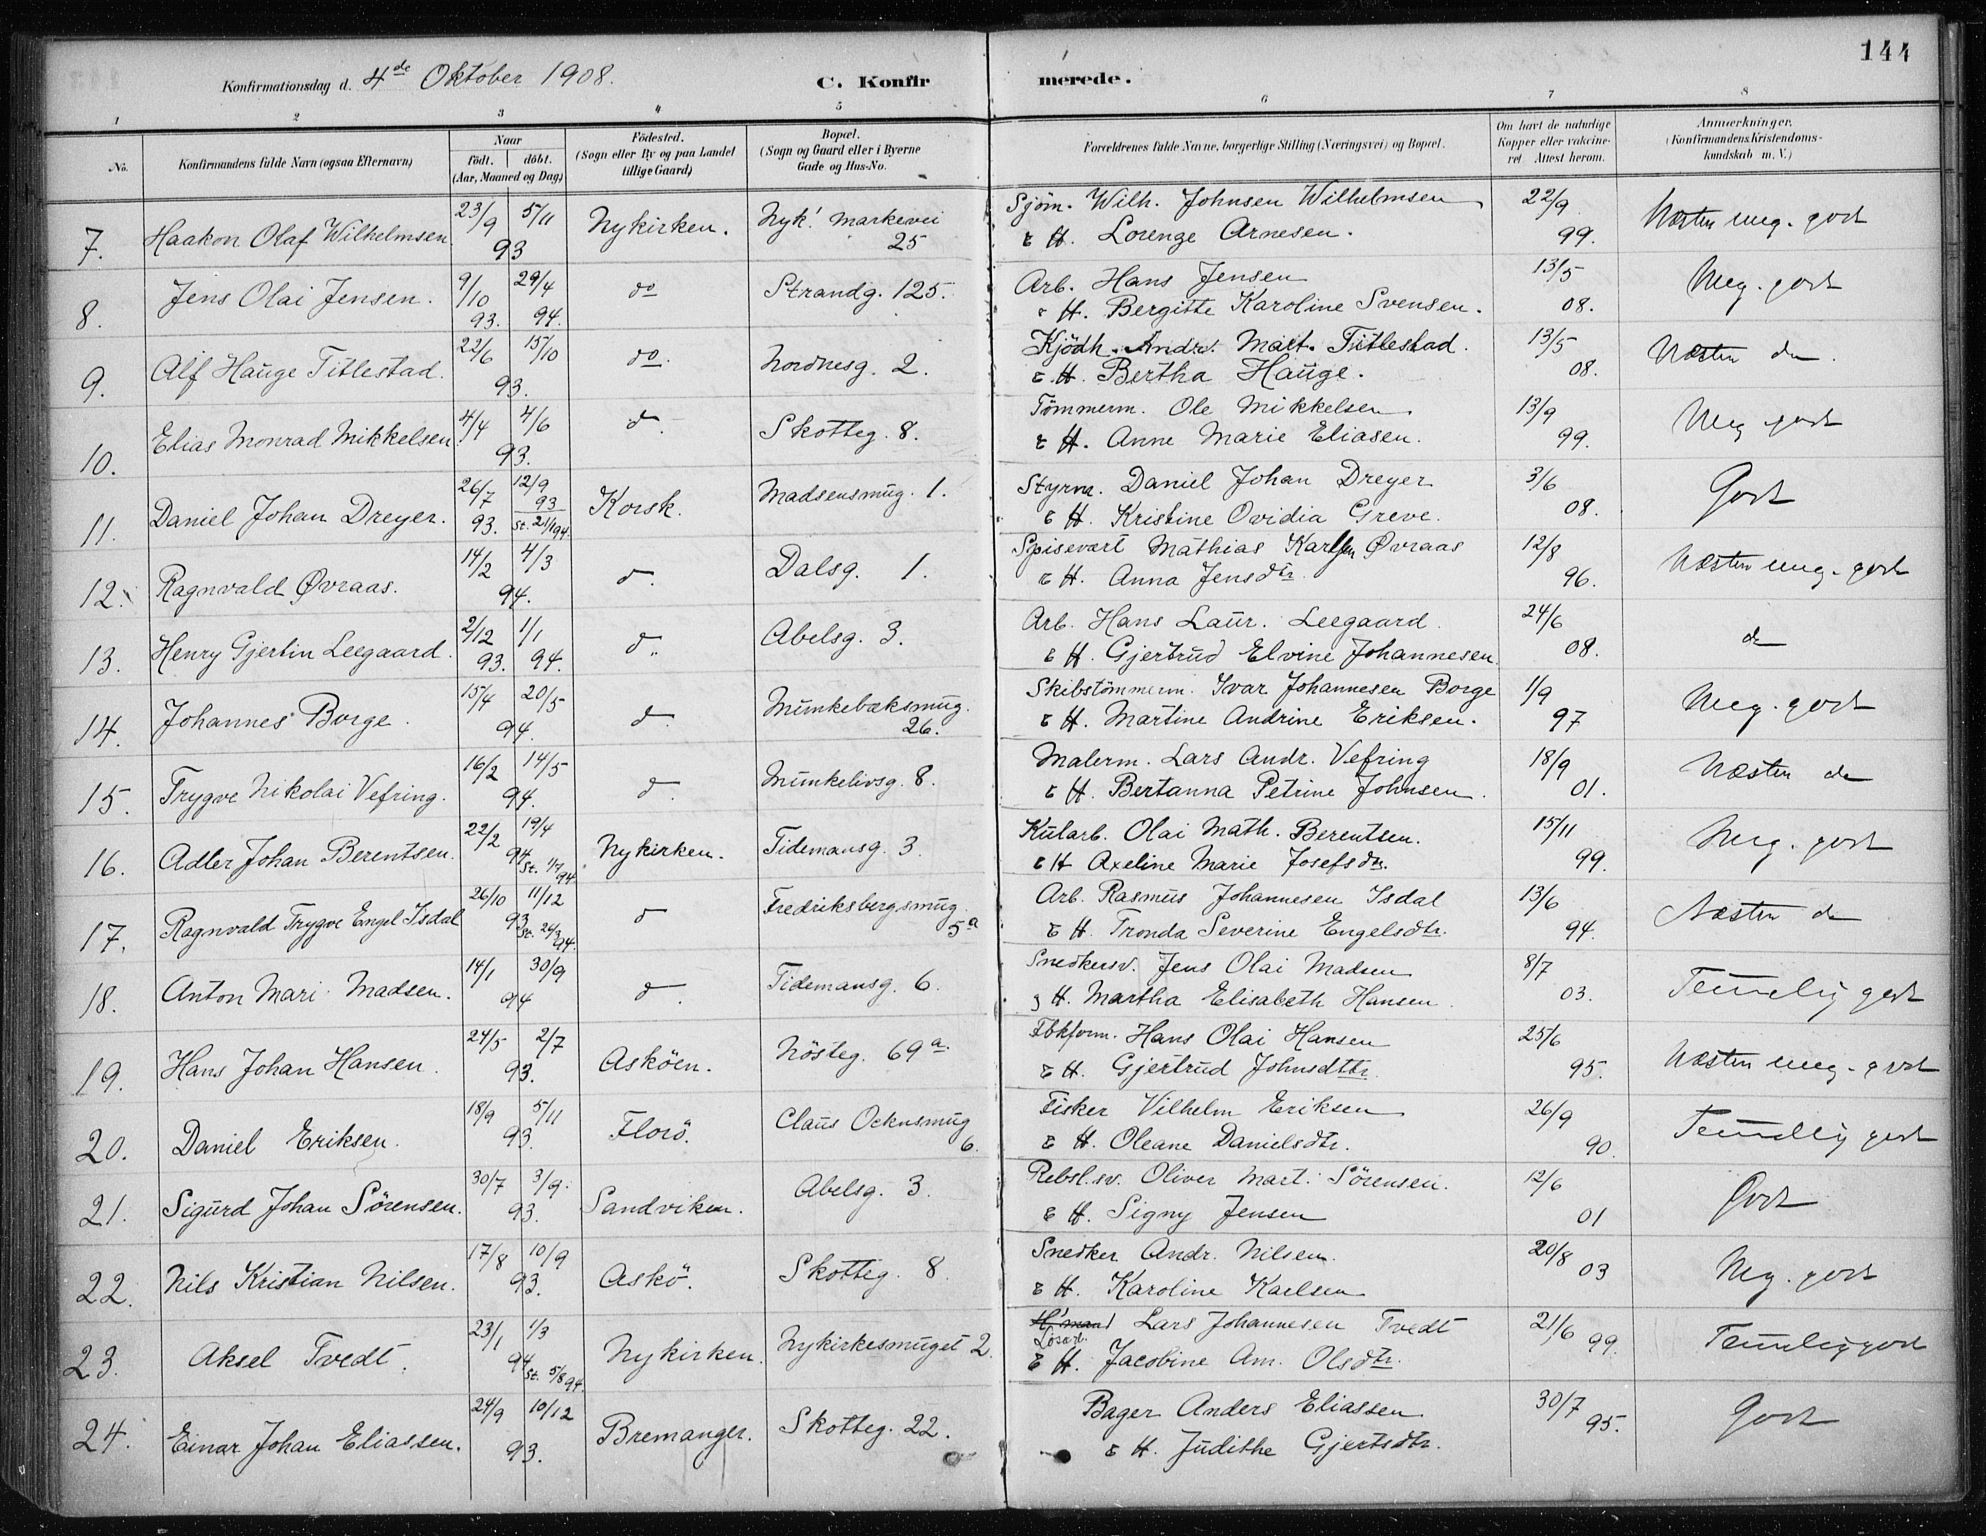 144
Konfirmationsdag d. 4de Oktober 1908.
C. Konfirmerede.
1 2 3 4 5 6 7 8
No.
Konfirmandens fulde Navn (ogsaa Efternavn)
Naar
födt. döbt.
(Aar, Maaned og Dag)
Födested.
(Sogn eller By og paa Landet
tillige Gaard)
Bopæl.
(Sogn og Gaard eller i Byerne
Gade og Hus-No.
Forældrenes fulde Navne, borgerlige Stilling (Næringsvei) og Bopæl.
Om havt de naturlige
Kopper eller vakcine-
ret. Attest herom.
Anmærkninger.
(Konfirmandens Kristendoms-
kundskab m. V.)
7. Haakon Olaf Wilhelmsen 23/9 5/11 93 Nykirken. Nyk! Markevei 25 Sjöm. Wilh. Johnsen Wilhelmsen 22/9 99. Næsten meg. godt
& H. Lorenge Arnesen.
8. Jens Olai Jensen. 9/10 93. 29/4 94. do Strandg. 125. Arb. Hans Jensen 13/5 08. Meg. godt
& H. Bergitte Karoline Svensen.
9. Alf Hauge Titlestad. 22/6 15/10 93. do Nordnesg. 2. Kjödh. Andr. Mart. Titlestad. 13/5 08. Næsten do.
& H. Bertha Hauge.
10. Elias Monrad Mikkelsen 4/4 4/6 93. do Skotteg. 8. Tömmerm. Ole Mikkelsen 13/9 99. Meg godt
& H. Anne Marie Eliasen.
11. Daniel Johan Dreyer. 26/7 93. 12/9 93 St. 21/1 94. Korsk. Madsensmug. 1. Styrm. Daniel Johan Dreyer 3/6 08. Godt
& H. Kristine Ovidia Greve.
12. Ragnvald Øvraas. 14/2 4/3 94. do. Dalsg. 1. Spisevært Mathias Karlsen Øvraas 12/8 96. Næsten meg. godt
& H. Anna Jensdtr.
13. Henry Gjertin Leegaard. 2/12 93. 1/1 94. do. Abelsg. 3. Arb. Hans Laur. Leegaard. 24/6 08. do
& H. Gjertrud Elvine Johannesen.
14. Johannes Borge. 15/4 20/5 94. do. Munkebæksmug. 26. Skibstömmerm. Ivar Johannesen Borge 1/9 97 Meg. godt
& H. Martine Andrine Eriksen.
15. Trygve Nikolai Vefring. 16/2 14/5 94. do. Munkelivsg. 8. Malerm. Lars Andr. Vefring 18/9 01. Næsten do
& H. Bertanna Petrine Johnsen.
16. Adler Johan Berentsen. 22/2 19/4 94 St. 1/7 94. Nykirken. Tidemansg. 3. Kularb. Olai Math. Berentsen. 15/11 99. Meg. godt
& H Axeline Marie Josefsdtr.
17. Ragnvald Trygve Engel Isdal 26/10 11/12 93 St. 24/3 94. do Fredriksbergsmug. 5a Arb. Rasmus Johannesen Isdal 13/6 94. Næsten do
& H. Tronda Severine Engelsdtr.
18. Anton Mari. Madsen. 14/1 30/9 94 do. Tidemansg. 6. Snedkersv. Jens Olai Madsen 8/7 03. Temmelig godt
& H. Martha Elisabeth Hansen.
19. Hans Johan Hansen. 24/5 2/7 93. Asköen. Nösteg. 69a. Fbkform. Hans Olai Hansen 25/6 95. Næsten meg. godt
& H. Gjertrud Johnsdtr.
20. Daniel Eriksen. 18/9 5/11 93. Florö. Claus Ocknsmug 6. Fisker Vilhelm Eriksen 26/9 90. Temmelig godt
& H. Oleane Danielsdtr.
21. Sigurd Johan Sörensen. 30/7 3/9. 93. Sandviken. Abelsg. 3. Rebsl.sv. Oliver Mart. Sörensen. 12/6 01 Godt
& H. Signy Jensen
22. Nils Kristian Nilsen. 17/8 10/9 93. Askö. Skotteg. 8. Snedker Andr. Nilsen. 20/8 03 Meg. godt
& H. Karoline Karlsen
23. Aksel Tvedt. 23/1 1/3 94 St. 5/8 94. Nykirken. Nykirkesmuget 2. Losarb. Lars Johannesen Tvedt 21/6 99. Temmelig godt
& H. Jacobine Am. Olsdtr.
24. Einar Johan Eliassen. 24/9 10/12 93. Bremanger. Skotteg. 22. Bager Anders Eliassen 30/7 95. Godt
& H. Judithe Gjertsdtr.